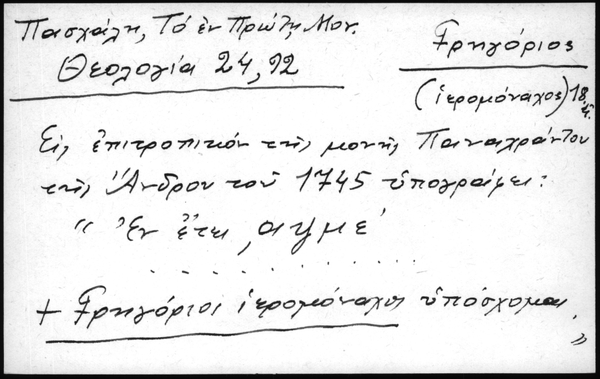 Πασχάλη, Τό ἐν Πρώτῃ Μον.
Θεολογία 24, 92
Γρηγόριος
(ἱερομόναχος) 18
Εἰς ἐπιτροπικόν τῆς μονῆς Παναχράντου
τῆς Ἄνδρου τοῦ 1745 ὑπογράφει:
“ Ἐν ἔτει ͵αψμε΄
. . . . . . . . . . . . .
+ Γρηγόριος ἱερομόναχος ὑπόσχομαι
”